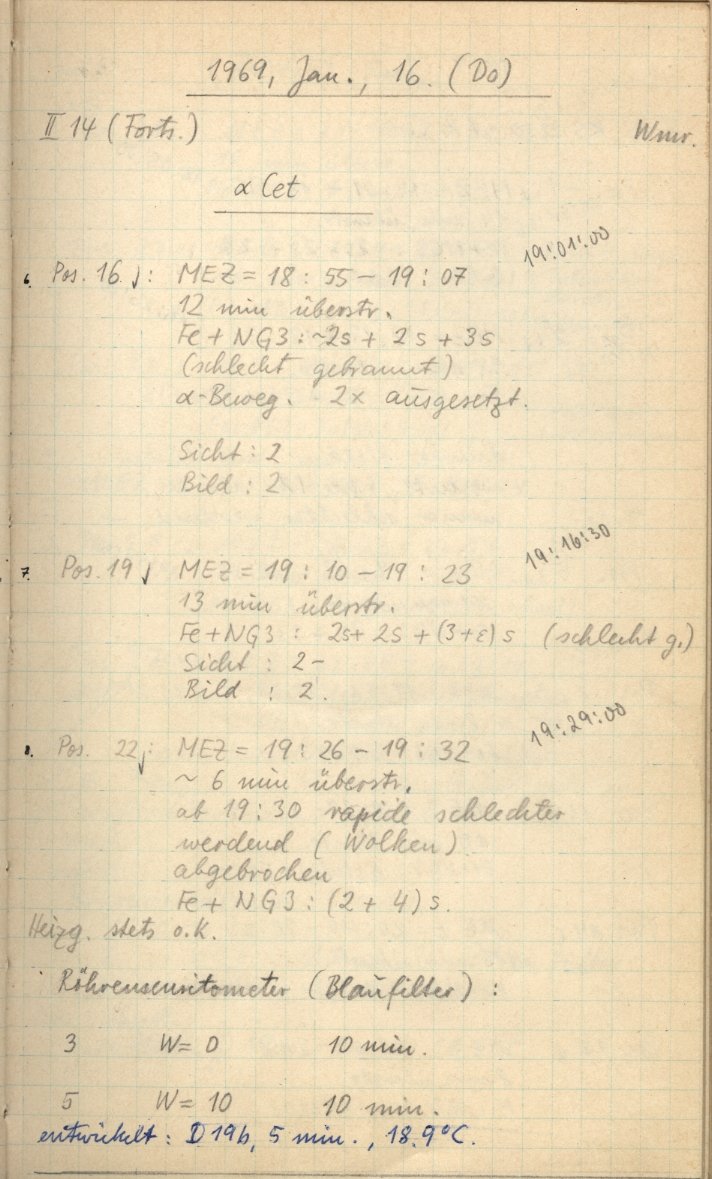 1969, Jan., 16. (Do)
II 14 (Forts.)
Wmr.
α Cet
19:01:00
6. Pos. 16: MEZ = 18:55 - 19:07
12 min überstr.
Fe + NG3: ~2s + 2s + 3s
(schlecht gebrannt)
α-Beweg. 2x ausgesetzt.
Sicht: 2
Bild: 2
19:16:30
7. Pos. 19 MEZ = 19:10 - 19:23
13 min überstr.
Fe + NG3: 2s + 2s + (3+ε)s (schlecht g.)
Sicht: 2-
Bild: 2.
19:29:00
8. Pos. 22: MEZ = 19:26 - 19:32
~ 6 min überstr.
ab 19:30 rapide schlechter
werdend (Wolken)
abgebrochen
Fe + NG3: (2 + 4)s.
Heizg. stets o.k.
Röhrensensitometer (Blaufilter):
3 W= 0 10 min.
5 W= 10 10 min.
entwickelt: D19b, 5 min., 18.9°C.